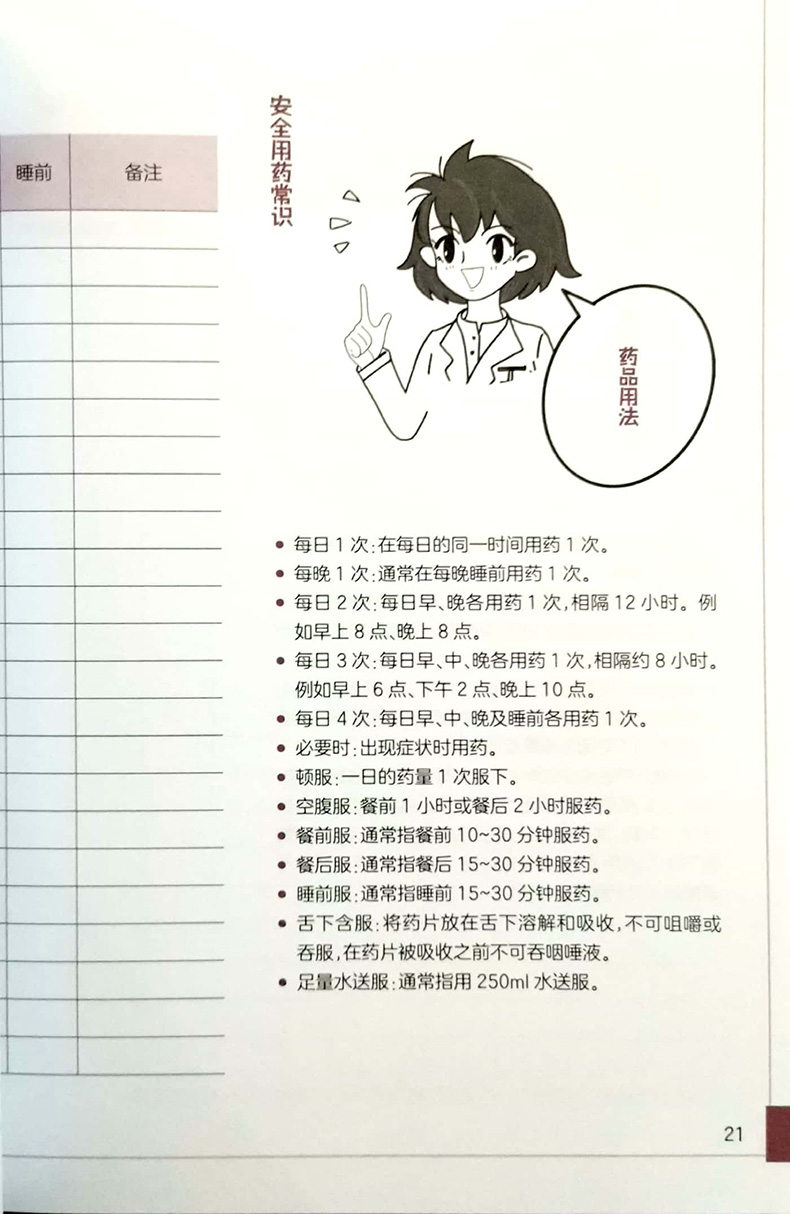 睡前
备注
安全用药常识
药品用法
• 每日1次:在每日的同一时间用药1次。
• 每晚1次:通常在每晚睡前用药1次。
• 每日2次:每日早、晚各用药1次,相隔12小时。例
如早上8点、晚上8点。
• 每日3次:每日早、中、晚各用药1次,相隔约8小时。
例如早上6点、下午2点、晚上10点。
• 每日4次:每日早、中、晚及睡前各用药1次。
• 必要时:出现症状时用药。
• 顿服:一日的药量1次服下。
• 空腹服:餐前1小时或餐后2小时服药。
• 餐前服:通常指餐前10~30分钟服药。
• 餐后服:通常指餐后15~30分钟服药。
• 睡前服:通常指睡前15~30分钟服药。
• 舌下含服:将药片放在舌下溶解和吸收,不可咀嚼或
吞服,在药片被吸收之前不可吞咽唾液。
• 足量水送服:通常指用250ml水送服。
21